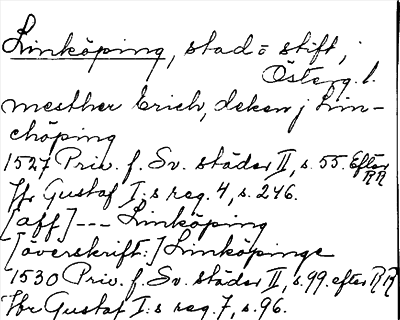 Linköping, stad o stift, i
Österg. l.
mesther Erich, deken j Lin-
chöping
1527 Priv. f. Sv. städer II, s. 55. Efter RR
Jfr Gustaf I:s reg. 4, s. 246.
[aff] --- Linköping
[överskrift:] Linköpinge
1530 Priv. f. Sv. städer II, s. 99. efter RR
Jfr Gustaf I:s reg. 7, s. 96.